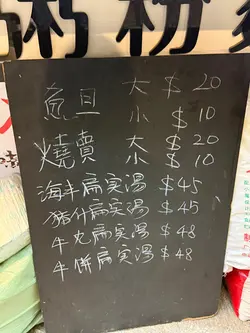 粥粉
魚旦 大 $20
小 $10
燒賣 大 $20
小 $10
海丰扁实湯 $45
豬什扁实湯 $45
牛丸扁实湯 $48
牛餅扁实湯 $48